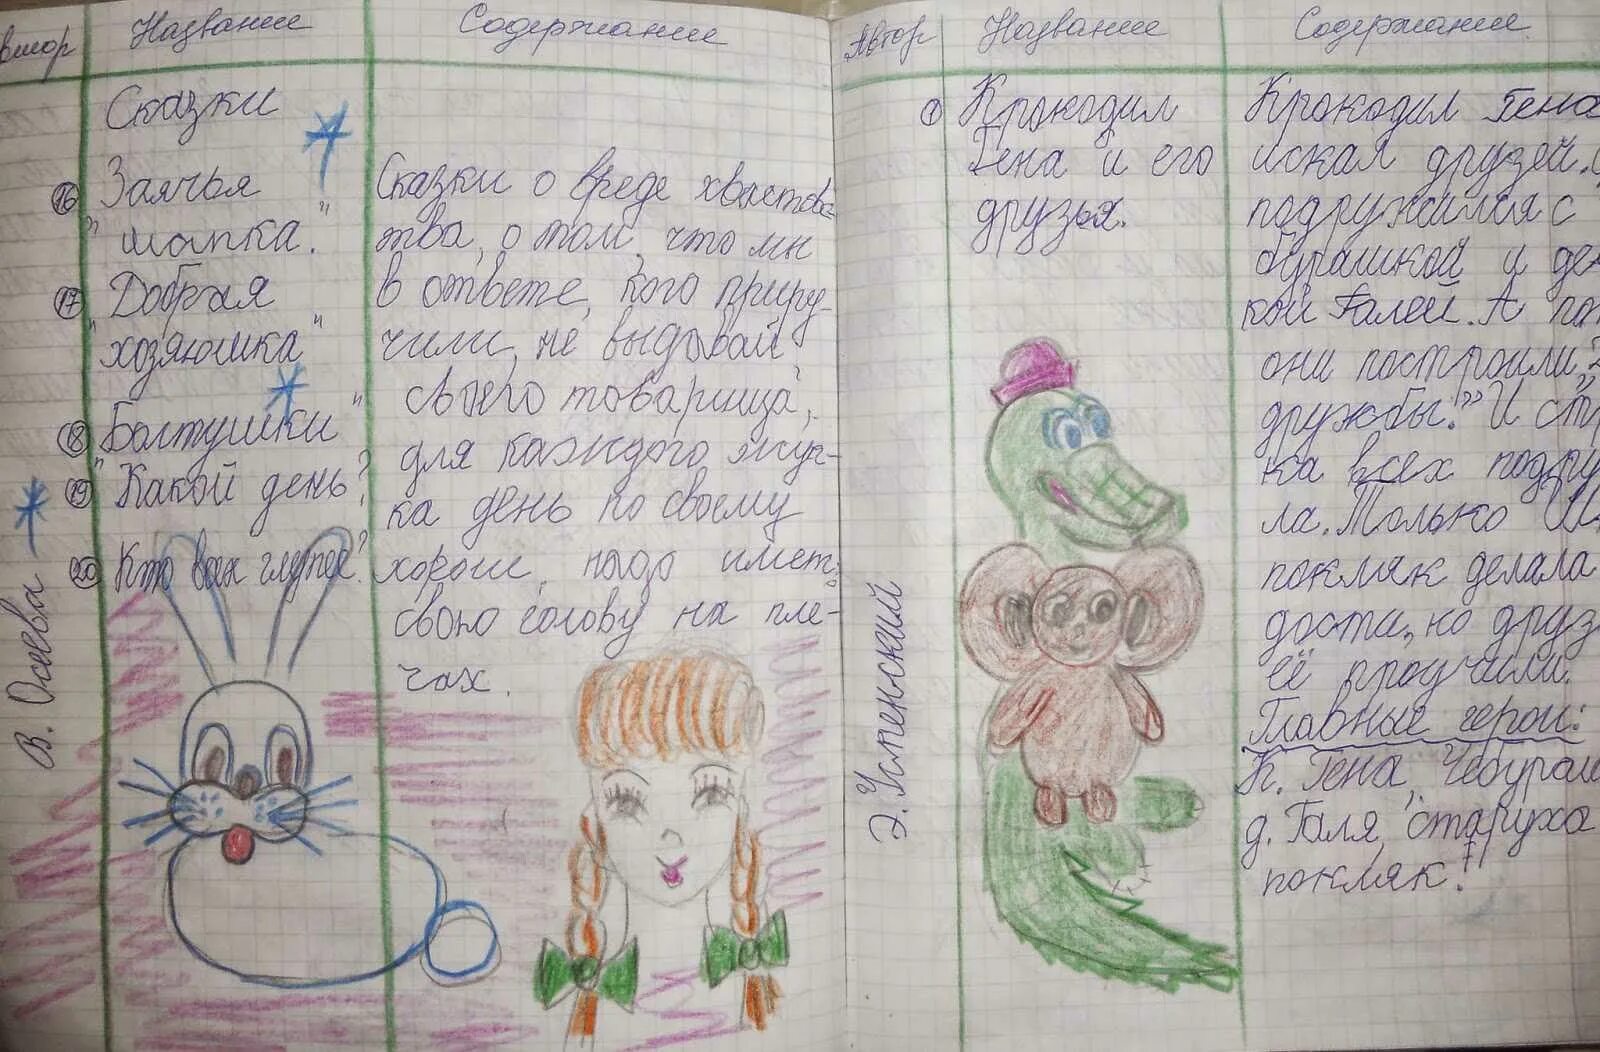 Автор Название Содержание
Сказки
16 Заячья
"шапка."
17 Добрая
"хозяюшка"
18 Болтушки"
19 "Какой день?
20 Кто всех глупее?
В. Осеева
Сказки о вреде хвастов-
тва, о том, что мы
в ответе, кого приру-
чили, не выдавай
своего товарища,
для каждого жуч-
ка день по своему
хорош, надо имет
свою голову на пле-
чах.
Автор Название Содержание
1 Крокодил
Гена и его
друзья.
Э. Успенский
Крокодил Гена
искал друзей.
подружился с
бурашкой и де
кой Галей. А по
они построили
дружбы." И
ка всех подру
ла. Только
покляк делала
доста, но друз
её проучили.
Главные герои:
К. Гена, Чебураш
д. Галя, старуха
покляк!